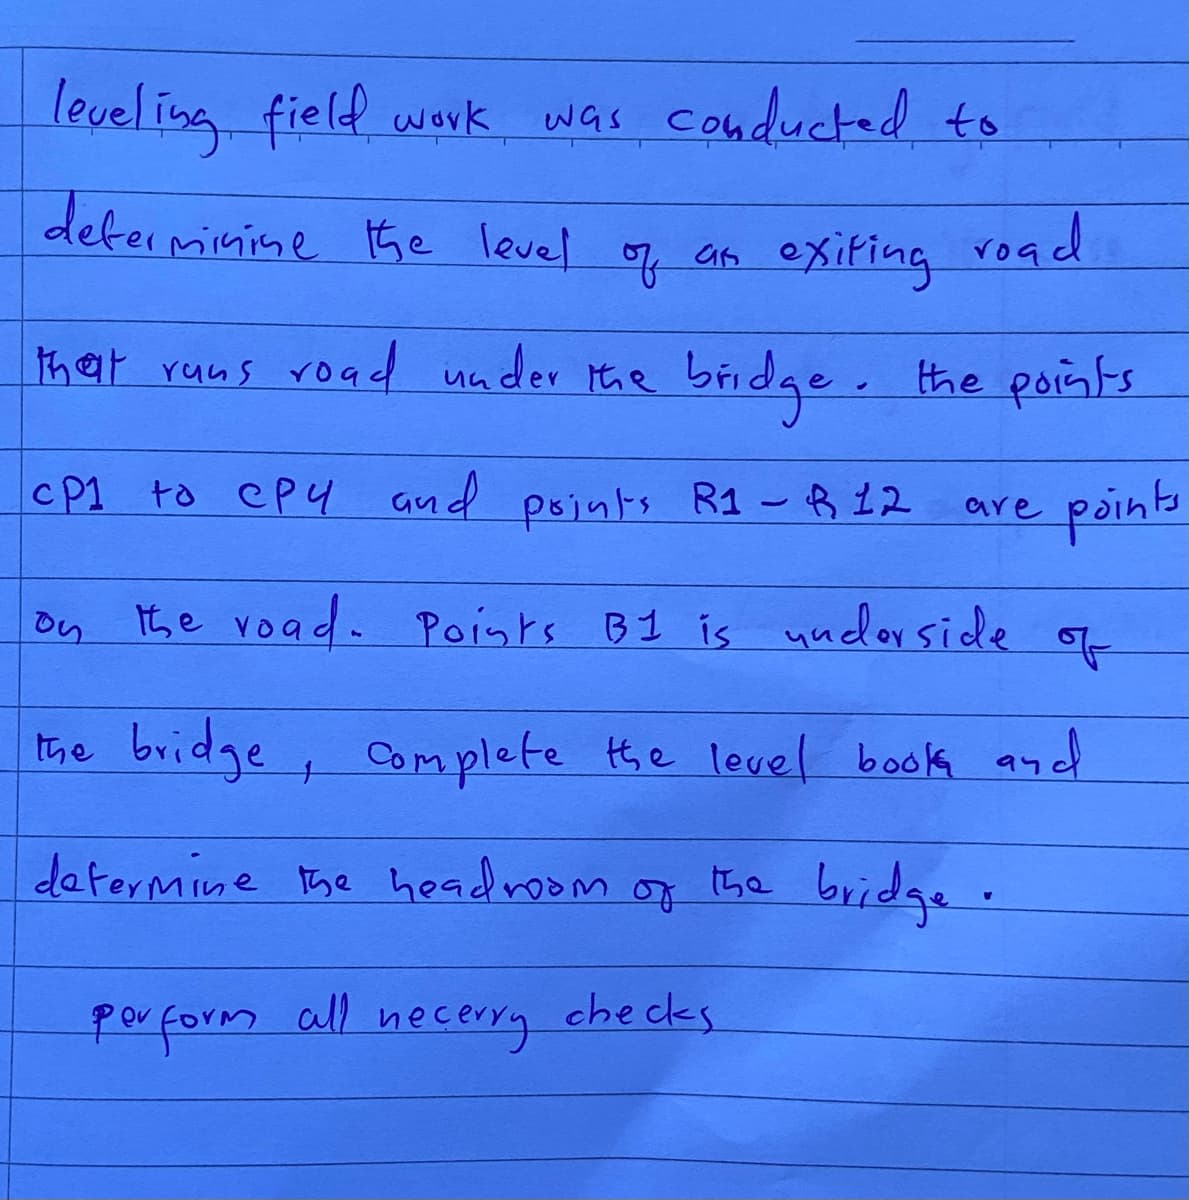 leveling field work was conducted to
determinine the level of an exiting road
that runs road under the bridge. the points
CP1 to CP4 and points R1 - R12 are points
on the road. Points B1 is underside of
the bridge, Complete the level book and
determine the headroom of the bridge.
perform all necerry checks